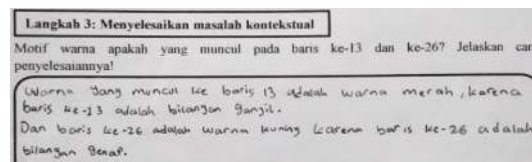 Langkah 3: Menyelesaikan masalah kontekstual
Motif warna apakah yang muncul pada baris ke-13 dan ke-26? Jelaskan car
penyelesaiannya!
Warna yang muncul ke baris 13 adalah warna merah, karena
baris ke-13 adalah bilangan ganjil.
Dan baris ke-26 adalah warna kuning karena baris ke-26 adalah
bilangan genap.